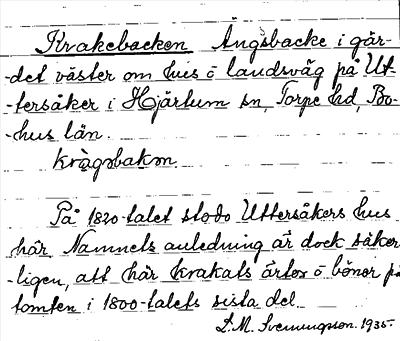 Krakebacken Ängsbacke i går-
-det väster om hus o landsväg på Ut-
-tersåker i Hjärtum sn, Torpe hd, Bo-
-hus län.
kràgsbakan.
På 1820-talet stodo Uttersåkers hus
här. Namnets anledning är dock säker-
-ligen, att här krakats ärtor o bönor på
tomten i 1800-talets sista del.
D.M. Svenungsson. 1935.